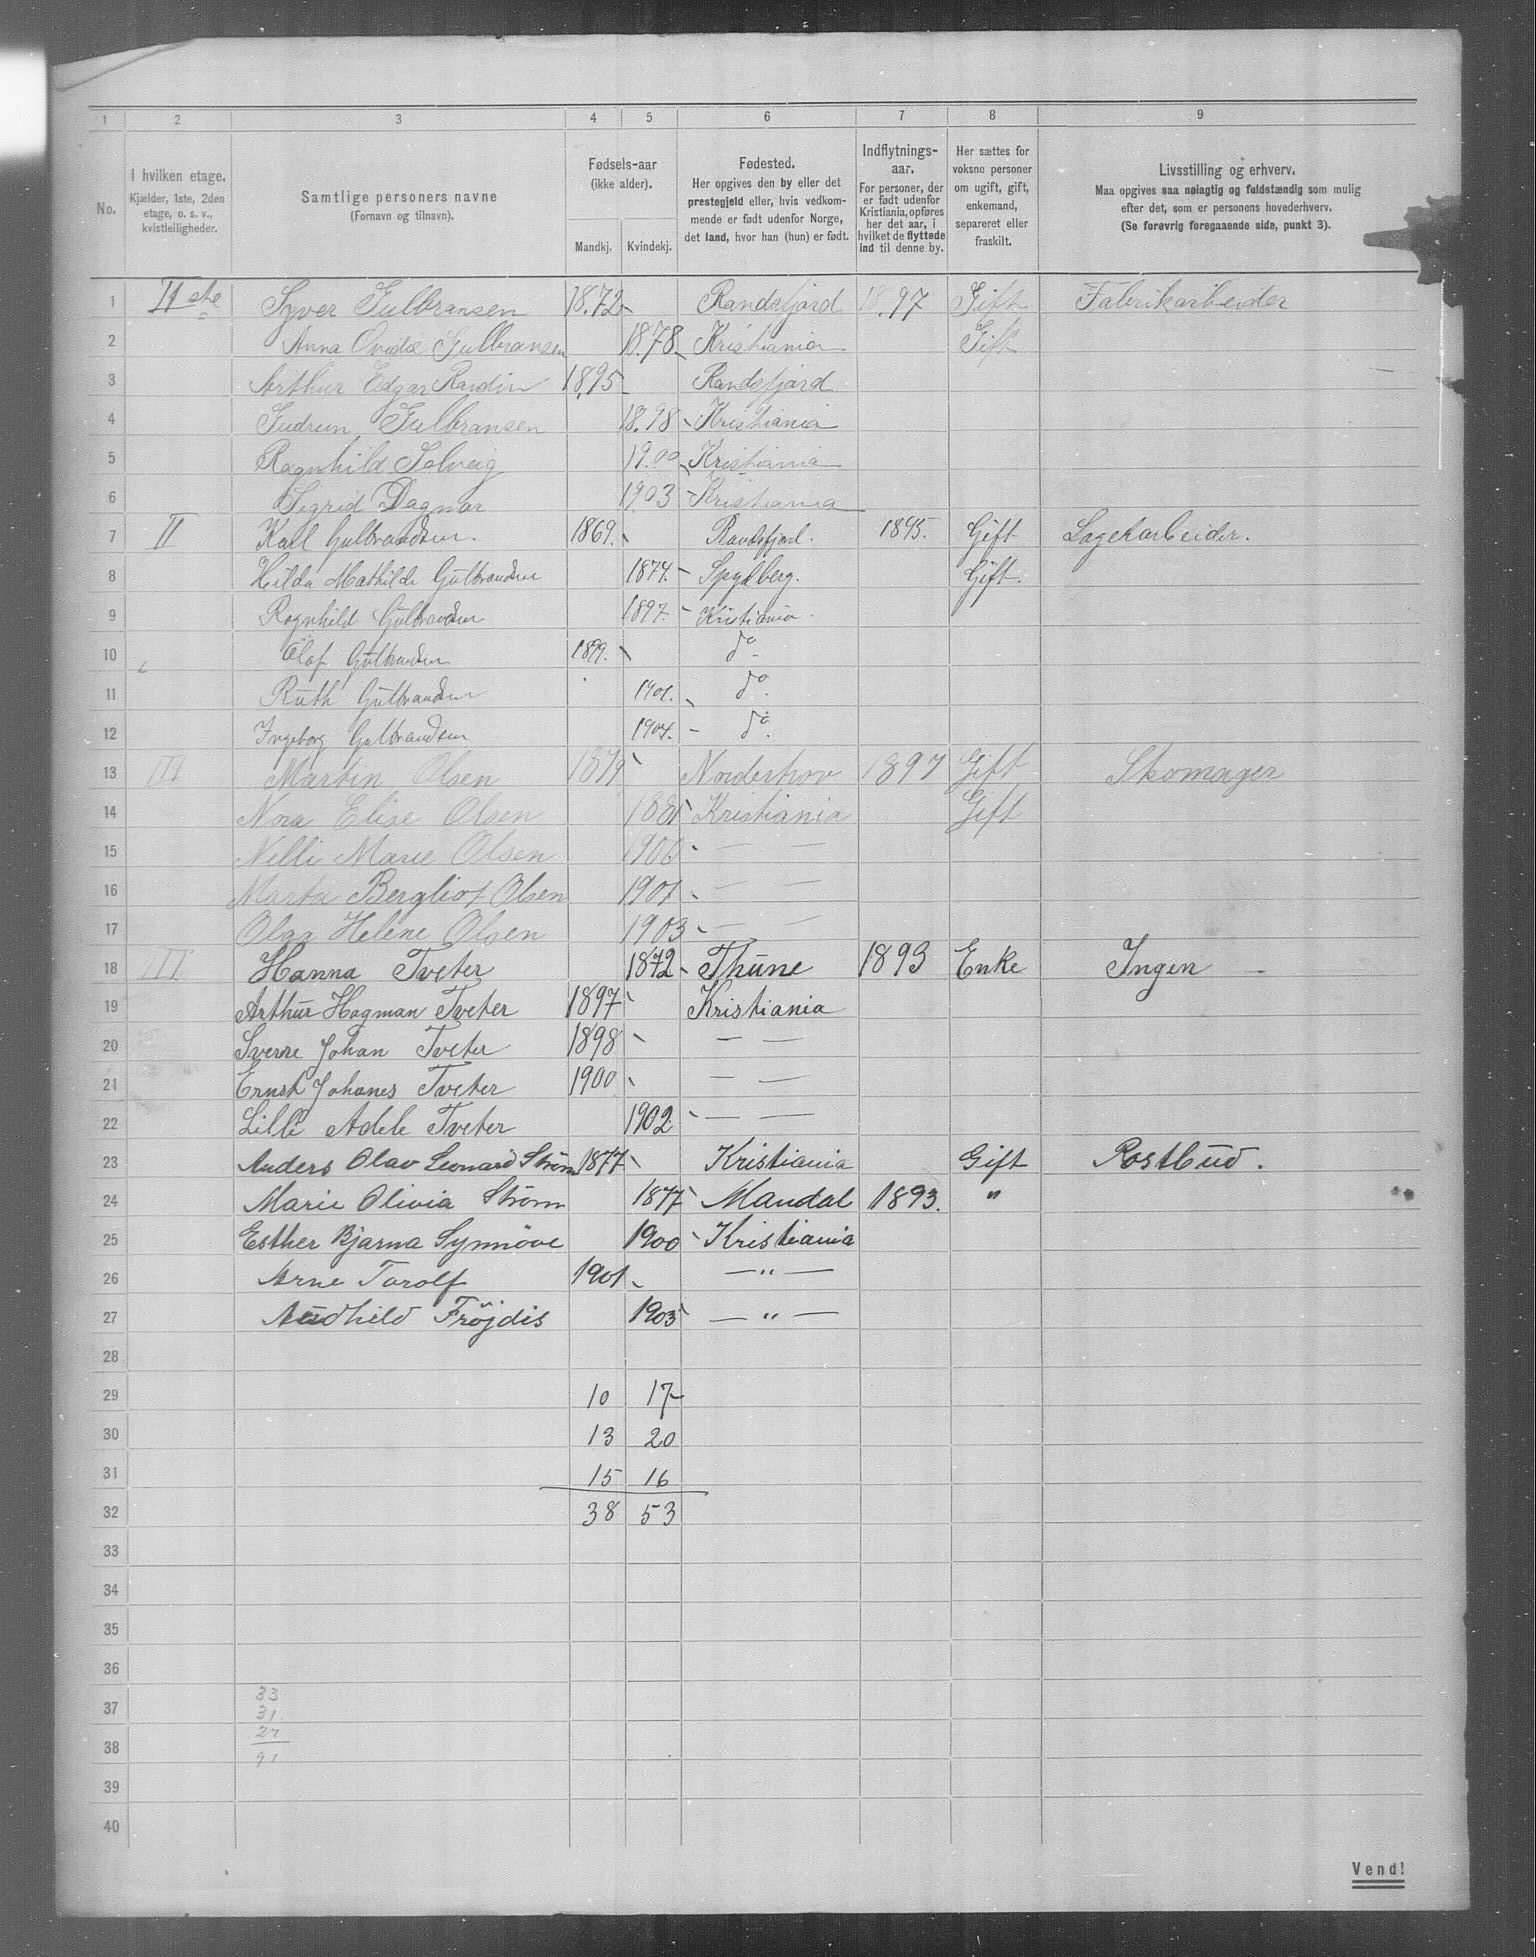 1 2 3 4 5 6 7 8 9
No.
I hvilken etage.
Kjælder, 1ste, 2den
etage, o. s. v.,
kvistleiligheder.
Samtlige personers navne
(Fornavn og tilnavn).
Fødsels-aar
(ikke alder).
Mandkj. Kvindekj.
Fødested.
Her opgives den by eller det
prestegjeld eller, hvis vedkom-
mende er født udenfor Norge,
det land, hvor han (hun) er født.
Indflytnings-
aar.
For personer, der
er født udenfor
Kristiania, opføres
her det aar, i
hvilket de flyttede
ind til denne by.
Her sættes for
voksne personer
om ugift, gift,
enkemand,
separeret eller
fraskilt.
Livsstilling og erhverv.
Maa opgives saa nøiagtig og fuldstændig som mulig
efter det, som er personens hovederhverv.
(Se forøvrig foregaaende side, punkt 3).
1 II ste Syver Gulbransen 1872 Randsfjord 1897 Gift Fabrikarbeider
2 Anna Ovidie Gulbransen 1878 Kristiania Gift
3 Arthur Edgar Randin 1895 Randsfjord
4 Gudrun Gulbransen 1898 Kristiania
5 Ragnhild Solveig 1900 Kristiania
6 Sigrid Dagmar 1903 Kristiania
7 II Karl Gulbrandsen. 1869. Randsfjord. 1895. Gift Lagerarbeider.
8 Hilda Mathilde Gulbrandsen 1874. Spydberg. Gift.
9 Ragnhild Gulbrandsen 1897. Kristiania.
10 Olaf Gulbrandsen 1899. do.
11 Ruth Gulbrandsen 1901. do.
12 Ingeborg Gulbrandsen 1904. do.
13 III Martin Olsen 1879 Norderhov 1897 Gift Skomager
14 Nora Elise Olsen 1881 Kristiania Gift
15 Nelli Marie Olsen 1900 — —
16 Marta Bergliot Olsen 1901 — —
17 Olga Helene Olsen 1903 — —
18 III Hanna Tveter 1872 Thune 1893 Enke Ingen —
19 Arthur Hagman Tveter 1897 Kristiania
20 Sverre Johan Tveter 1898 — —
21 Ernst Johanes Tveter 1900 — —
22 Lilli Adele Tveter 1902 — —
23 Anders Olav Leonard Strøm 1877 Kristiania Gift Postbud.
24 Marie Olivia Strøm 1877 Mandal 1893. "
25 Esther Bjarna Synnöve 1900 Kristiania
26 Arne Torolf 1901 — " —
27 Audhild Fröjdis 1903 — " —
28
29 10 17
30 13 20
31 15 16
32 38 53
33
34
35
36
33
37
31.
27
38
91
39
40
Vend!